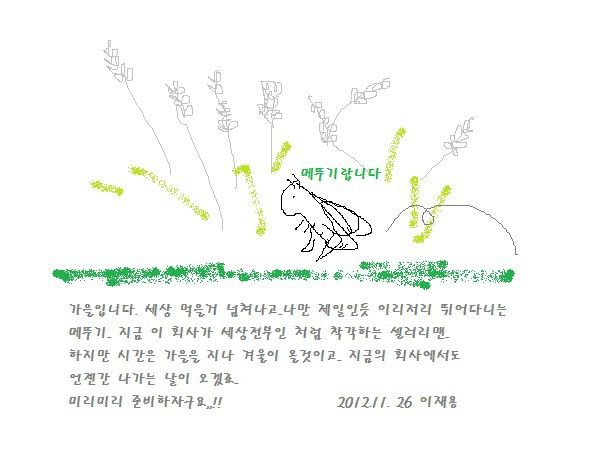 메뚜기랍니다
가을입니다. 세상 먹을거 넘쳐나고..나만 제일인듯 이리저리 뛰어다니는
메뚜기.. 지금 이 회사가 세상전부인 처럼 착각하는 셀러리맨..
하지만 시간은 가을을 지나 겨울이 올것이고.. 지금의 회사에서도
언젠간 나가는 날이 오겠죠..
미리미리 준비하자구요,,!! 2012.11. 26 이재용